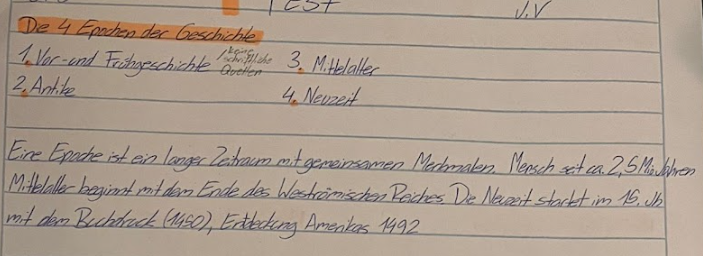 TEST J.V
Die 4 Epochen der Geschichte
1. Vor- und Frühgeschichte /keine schriftliche Quellen 3. Mittelalter
2. Antike 4. Neuzeit
Eine Epoche ist ein langer Zeitraum mit gemeinsamen Merkmalen. Mensch seit ca. 2,5 Mio. Jahren
Mittelalter beginnt mit dem Ende des Weströmischen Reiches. Die Neuzeit startet im 15. Jh
mit dem Buchdruck (1450), Entdeckung Amerikas 1492